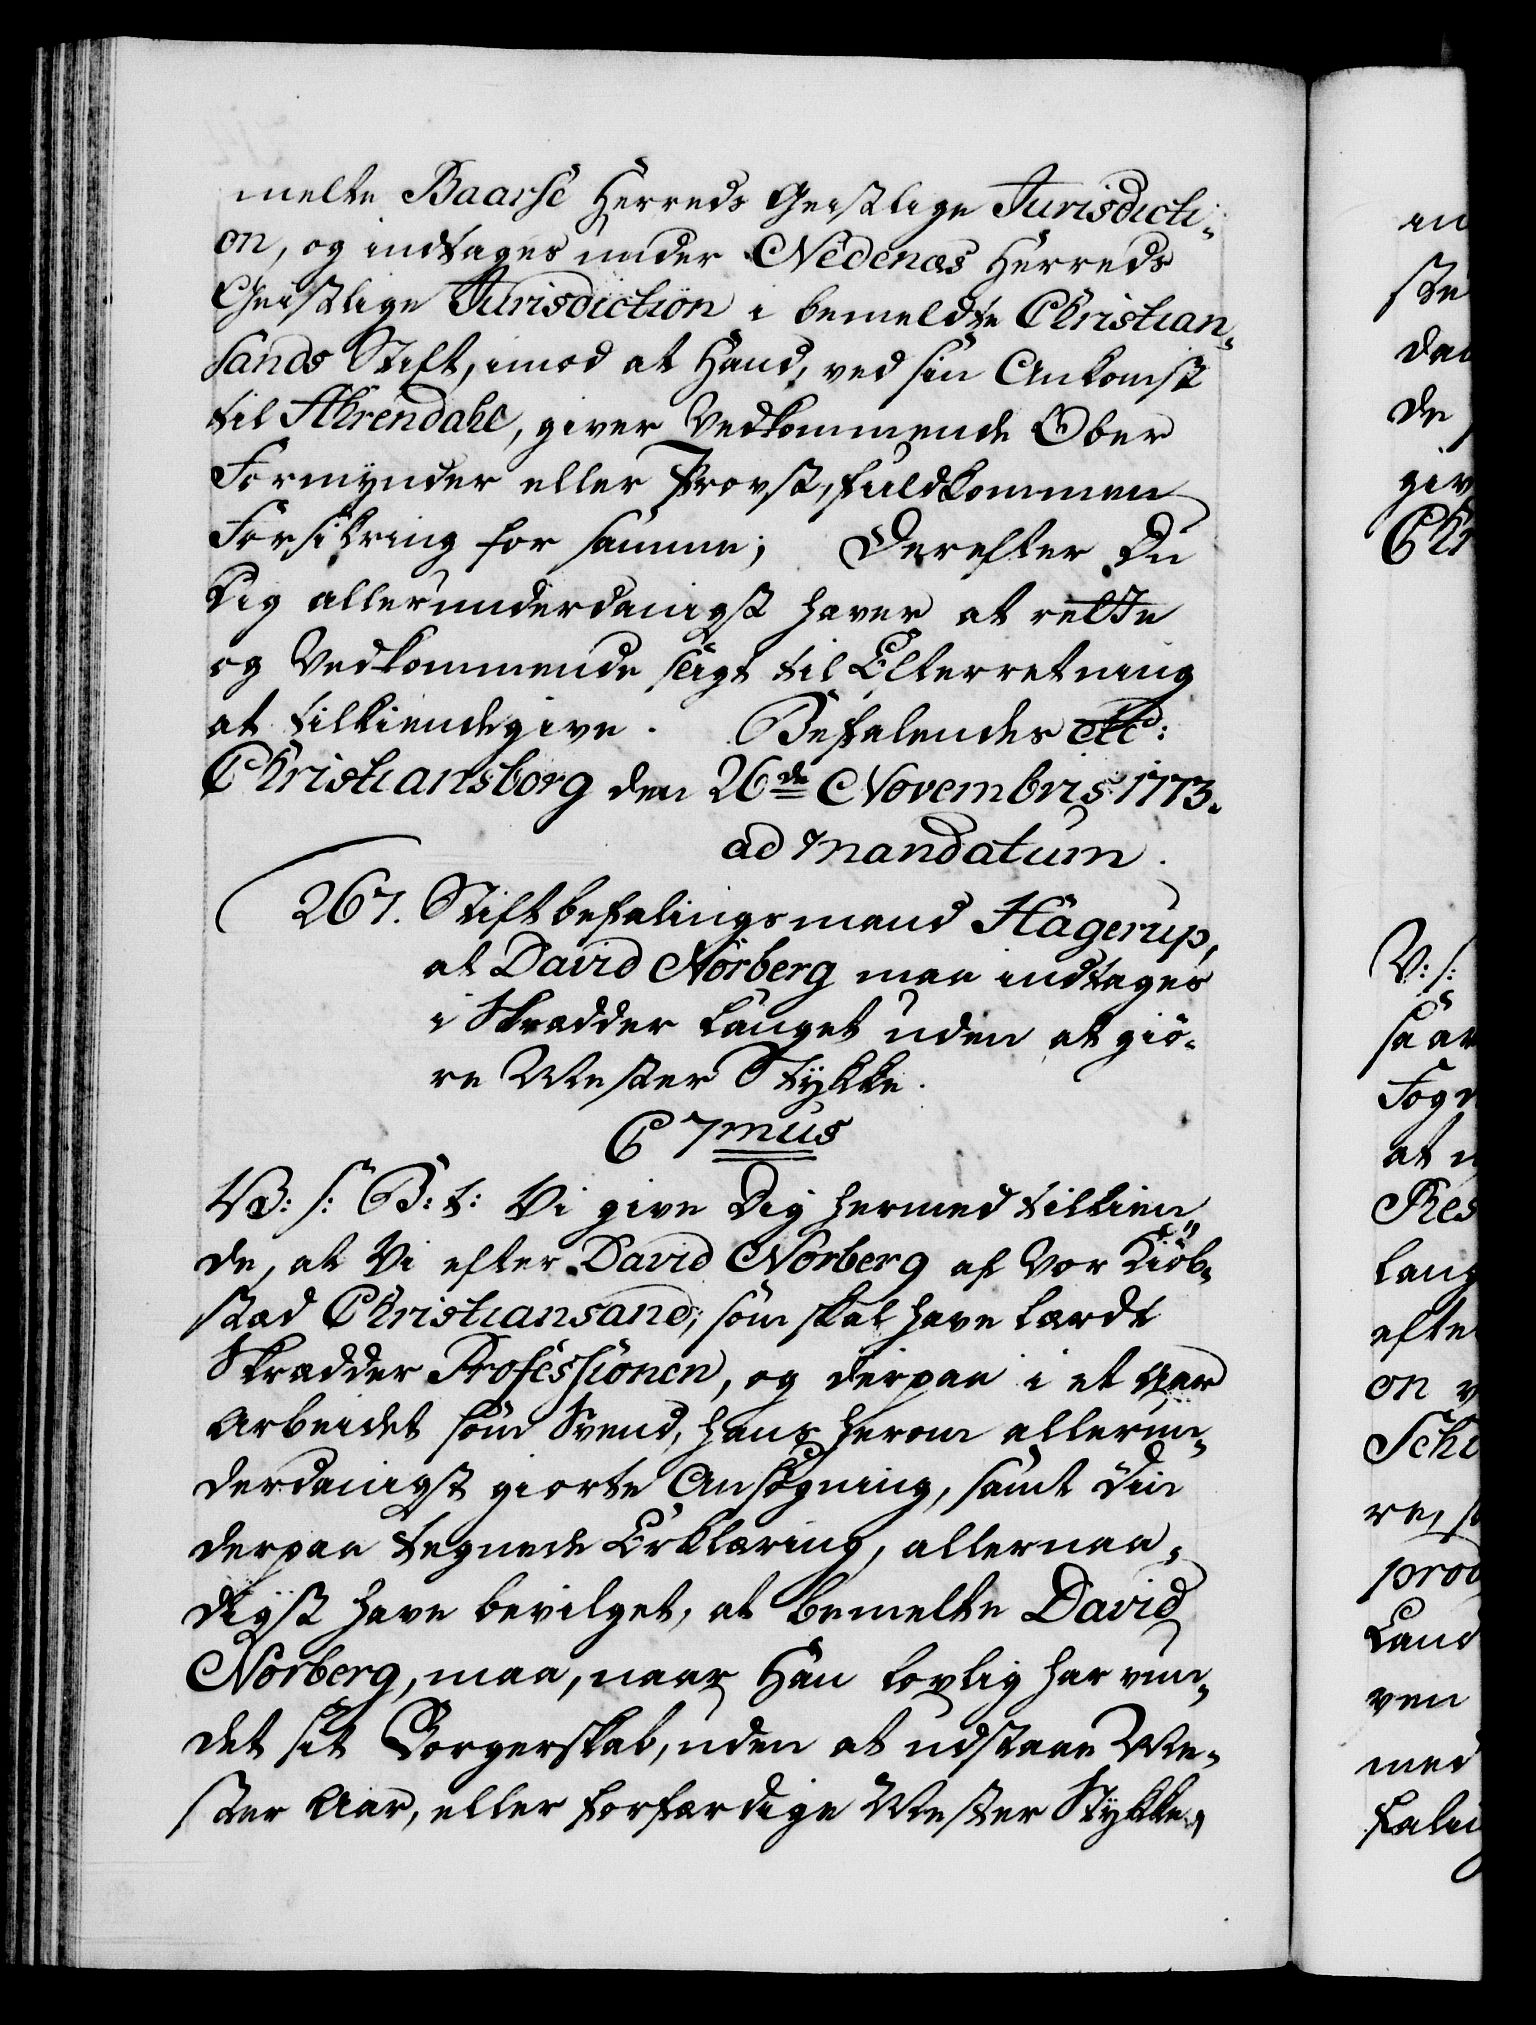 melte Baarse Herreds Geistlige Jurisdicti-
on, og indtages under Nedenæs Herreds
Geistlige Jurisdiction i bemeldte Christian-
sands Stift, imod at Hand, ved sin Ankomst
til Ahrendahl, giver Vedkommende Ober
Formynder eller Provst, fuldkommen
Forsikring for samme; Derefter Du
Dig allerunderdanigst haver at rette
og Vedkommende sligt til Efterretning
at tilkiendegive. Befalendes etc:
Christiansborg den 26de Novembris 1773.
ad mandatum.
267. Stiftbefalingsmand Hagerup,
at David Norberg maa indtages
i Skrædder Lauget uden at giø-
re Mester Stykke.
C 7mus
V: S: G: t: Vi give Dig hermed tilkien
de, at Vi efter David Norberg af Vor Kiøb-
stad Christiansand, som skal have lærdt
Skrædder Professionen, og derpaa i et Aar
Arbeidet som Svend, hans herom allerun-
derdanigst giorte Ansøgning, samt Din
derpaa tegnede Erklæring, allernaa-
digst have bevilget, at bemelte David
Norberg, maa, naar Han lovlig har vun-
det sit Borgerskab, uden at udstaae Me-
ster Aar, eller forfærdige Mester Stykke,
in
ste
dan
de
giv
Chr
V: s:
saa
Fog
at
Res
lang
efte
on
Sch
re,
prod
Land
ven
med
falin